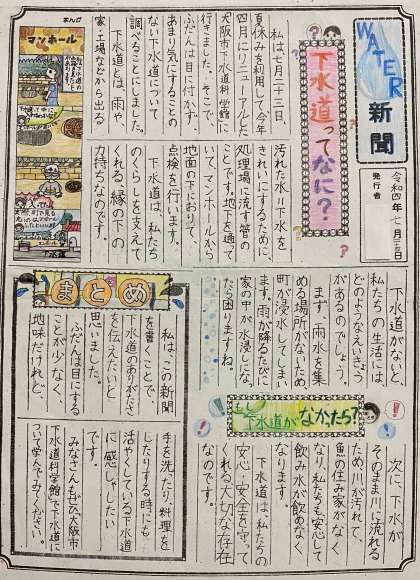 WATER
新聞
令和四年七月二三日
発行者
下水道ってなに?
私は、七月二十三日、
夏休みを利用して今年
四月にリニューアルした
「大阪市下水道科学館」に
行きました。そこで、
ふだんは目に付かず、
あまり気にすることの
ない下水道について
調べることにしました。
下水道とは、雨や、
家・工場などから出る
汚れた水=下水を
きれいにするために、
処理場に流す管の
ことです。地下を通って
いて、マンホールから
地面の下におりて、
点検を行います。
下水道は、私たち
のくらしを支えて
くれる、縁の下の
力持ちなのです。
まんが
マンホール
もし下水道がなかったら?
下水道がないと、
私たちの生活には、
どのようなえいきょう
があるのでしょう。
まず、雨水を集
める場所がないため、
町が浸水してしまい
ます。雨が降るたびに
家の中が水浸しにな
ったら困りますね。
次に、下水が
そのまま川に流れる
ため川が汚れて、
魚の住み家がなく
なり、私たちも安心して
飲み水が飲めなく
なります。
下水道は、私たちの
安心・安全を守って
くれる大切な存在
なのです。
まとめ
私は、この新聞
を書くことで、
下水道のありがたさ
を伝えたいと
思いました。
ふだんは目にする
ことが少なく、
地味だけれど、
手を洗たり、料理を
したりする時にも
活やくしている下水道
に感しゃしたい
です。
みなさんもぜひ大阪市
下水道科学館で下水道に
ついて学んでみてください。